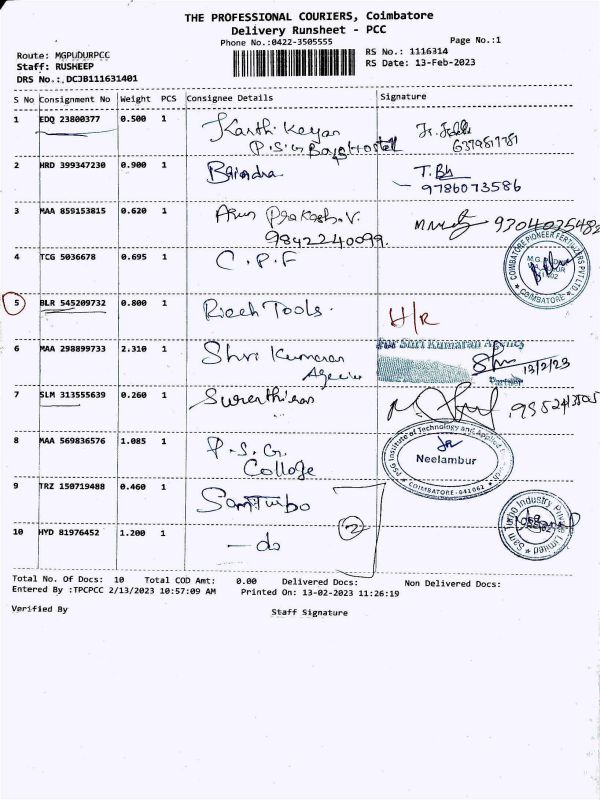 THE PROFESSIONAL COURIERS, Coimbatore
Delivery Runsheet - PCC
Phone No.:0422-3505555
Page No.:1
Route: MGPUDURPCC
RS No.: 1116314
Staff: RUSHEEP
RS Date: 13-Feb-2023
DRS No.:.DCJB111631401
S No Consignment No Weight PCS Consignee Details Signature
1 EDQ 23800377 0.500 1 Karthi Keyan
P.S.G Boys Hostel
2 HRD 399347230 0.900 1 T.
9786073586
3 MAA 859153815 0.620 1 Arun Prakash.V. 9304035482
9842240099.
4 TCG 5036678 0.695 1 C.P.F
COIMBATORE PIONEER FERTILIZERS PVT LTD
COIMBATORE
5 BLR 545209732 0.800 1 Tools. H/R
6 MAA 298899733 2.310 1 Shri Kumaran
For Shri Kumaran Agency
13/2/23
Partner
7 SLM 313555639 0.260 1
8 MAA 569836576 1.085 1 P.S.G.
College
PSG Institute of Technology and Applied
Neelambur
COIMBATORE-641062
9 TRZ 150719488 0.460 1 Sam Turbo
Sam Turbo Industry Private Limited
10 HYD 81976452 1.200 1 - do
2
Total No. Of Docs: 10 Total COD Amt: 0.00 Delivered Docs: Non Delivered Docs:
Entered By :TPCPCC 2/13/2023 10:57:09 AM Printed On: 13-02-2023 11:26:19
Verified By Staff Signature